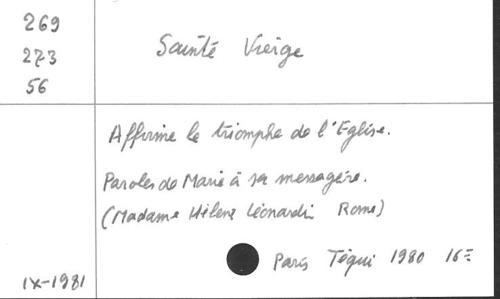 269
273
56
Sainte Vierge
Affirme le triomphe de l'Eglise.
Paroles de Marie à sa messagère.
(Madame Hélène Léonardi Rome)
Paris Téqui 1980 16=
IX-1981